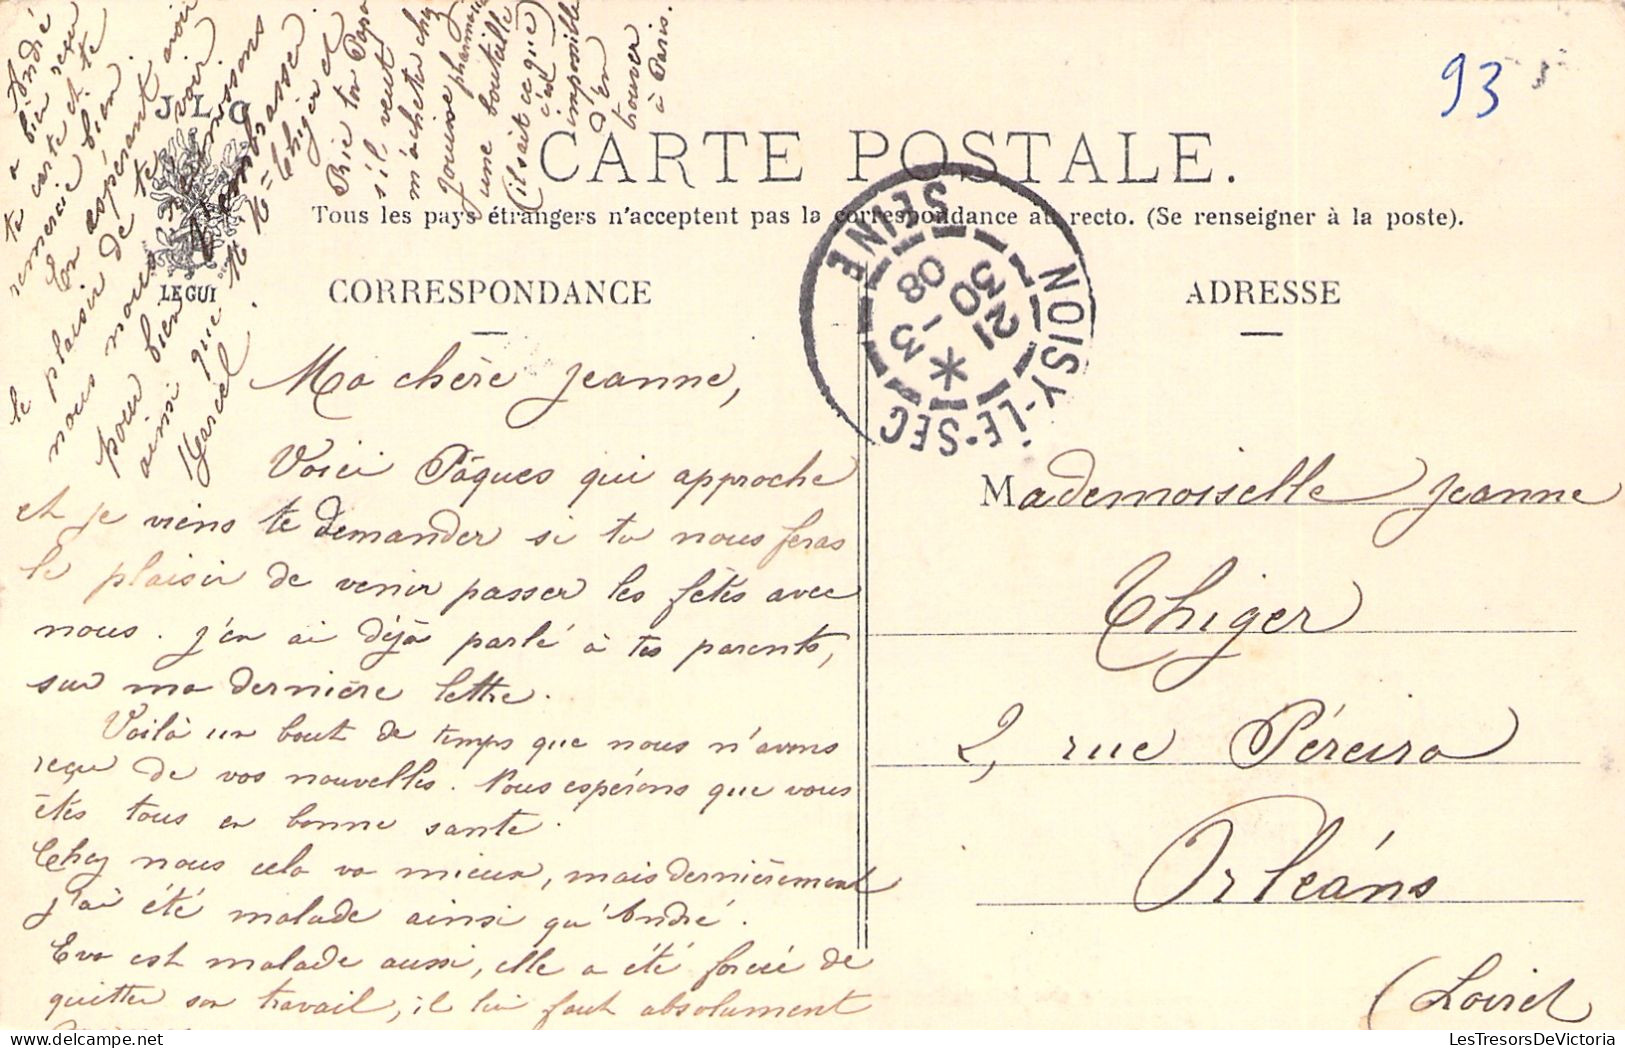 93
J L C
LE GUI
CARTE POSTALE.
Tous les pays étrangers n'acceptent pas la correspondance au recto. (Se renseigner à la poste).
CORRESPONDANCE
ADRESSE
NOISY-LE-SEC
SEINE
21 30
3 - 08
Ma chère Jeanne,
Voici Pâques qui approche
et je viens te demander si tu nous feras
le plaisir de venir passer les fêtes avec
nous. J'en ai déjà parlé à tes parents,
sur ma dernière lettre.
Voilà un bout de temps que nous n'avons
reçu de vos nouvelles. Nous espérons que vous
êtes tous en bonne santé.
Chez nous cela va mieux, mais dernièrement
j'ai été malade ainsi qu'André.
Eva est malade aussi, elle a été forcée de
quitter son travail, il lui faut absolument
André
a bien reçu
ta carte et te
remercie bien.
En espérant avoir
le plaisir de te voir,
nous nous réunissons
pour bien t'embrasser
ainsi que Mr Me Thiger et
Marcel.
Prie ton Papa
s'il veut
m'acheter chez
Jouisse pharmacien
une bouteille
(il sait ce que
c'est)
impossible
d'en
trouver
à Paris.
Mademoiselle Jeanne
Thiger
2, rue Péreira
Orléans
(Loiret
LesTresorsDeVictoria